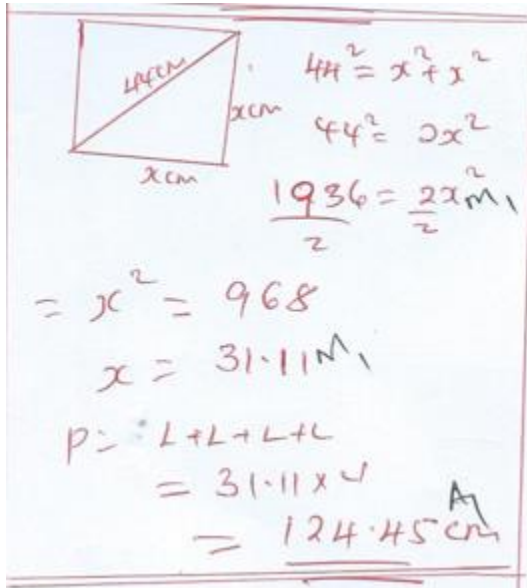 44cm
xcm
xcm
44² = x² + x²
44² = 2x²
1936 = 2x² M1
2 2
= x² = 968
x = 31.11 M1
P = L+L+L+L
= 31.11 x 4
A1
= 124.45 cm